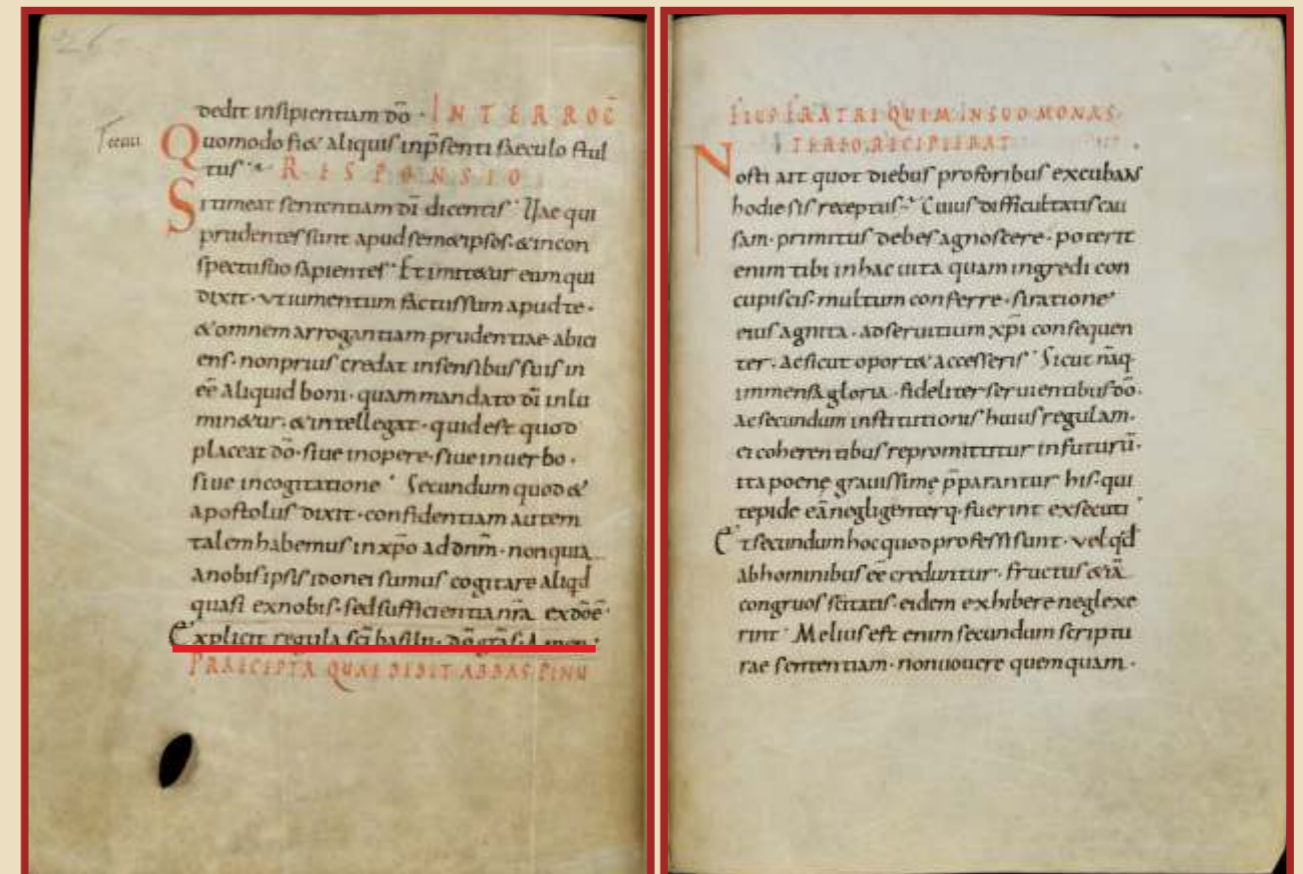 26
dedit insipientiam dō · INTERROḠ
Quomodo fi& aliquis inp̄senti saeculo stul
tus · RESPONSIO
Si timeat sententiam dī dicentis · Uae qui
prudentes sunt apud sem&ipsos · & incon
spectu suo sapientes · Et imit&ur eum qui
dixit · ut iumentum factus sum apud te ·
& omnem arrogantiam prudentiae abici
ens · non prius credat in sensibus suis in
eē aliquid boni · quam mandato dī inlu
min&ur · & intellegat · quid est quod
placeat dō · siue in opere · siue in uerbo ·
siue in cogitatione · Secundum quod &
apostolus dixit · confidentiam autem
talem habemus in xp̄o ad dn̄m · non quia
a nobis ipsis idonei sumus cogitare aliqd
quasi ex nobis · sed sufficientia nr̄a ex dō ē ·
Explicit regula sc̄i basilii · dō grās · Amen ·
PRAECEPTA QUAE DIDIT ABBAS PINU
FIUS FRATRI QUEM IN SUO MONAS
TERIO RECIPIEBAT
Nosti ait quot diebus pro foribus excubans
hodie sis receptus · Cuius difficultatis cau
sam · primitus debes agnoscere · poterit
enim tibi in hac uita quam ingredi con
cupiscis · multum conferre · si ratione
eius agnita · ad seruitium xp̄i consequen
ter · ac sicut oport& accesseris · Sicut nāq
immensa gloria · fideliter seruientibus dō ·
ac secundum institutionis huius regulam ·
ei coherentibus repromittitur in futurū ·
ita poenę grauissimę p̄parantur his · qui
tepide eā negligenterq · fuerint exsecuti
Et secundum hoc quod professi sunt · vel qd
ab hominibus eē creduntur · fructus &iā
congruos sc̄itatis · eidem exhibere neglexe
rint · Melius est enim secundum scriptu
rae sententiam · non uouere quemquam ·